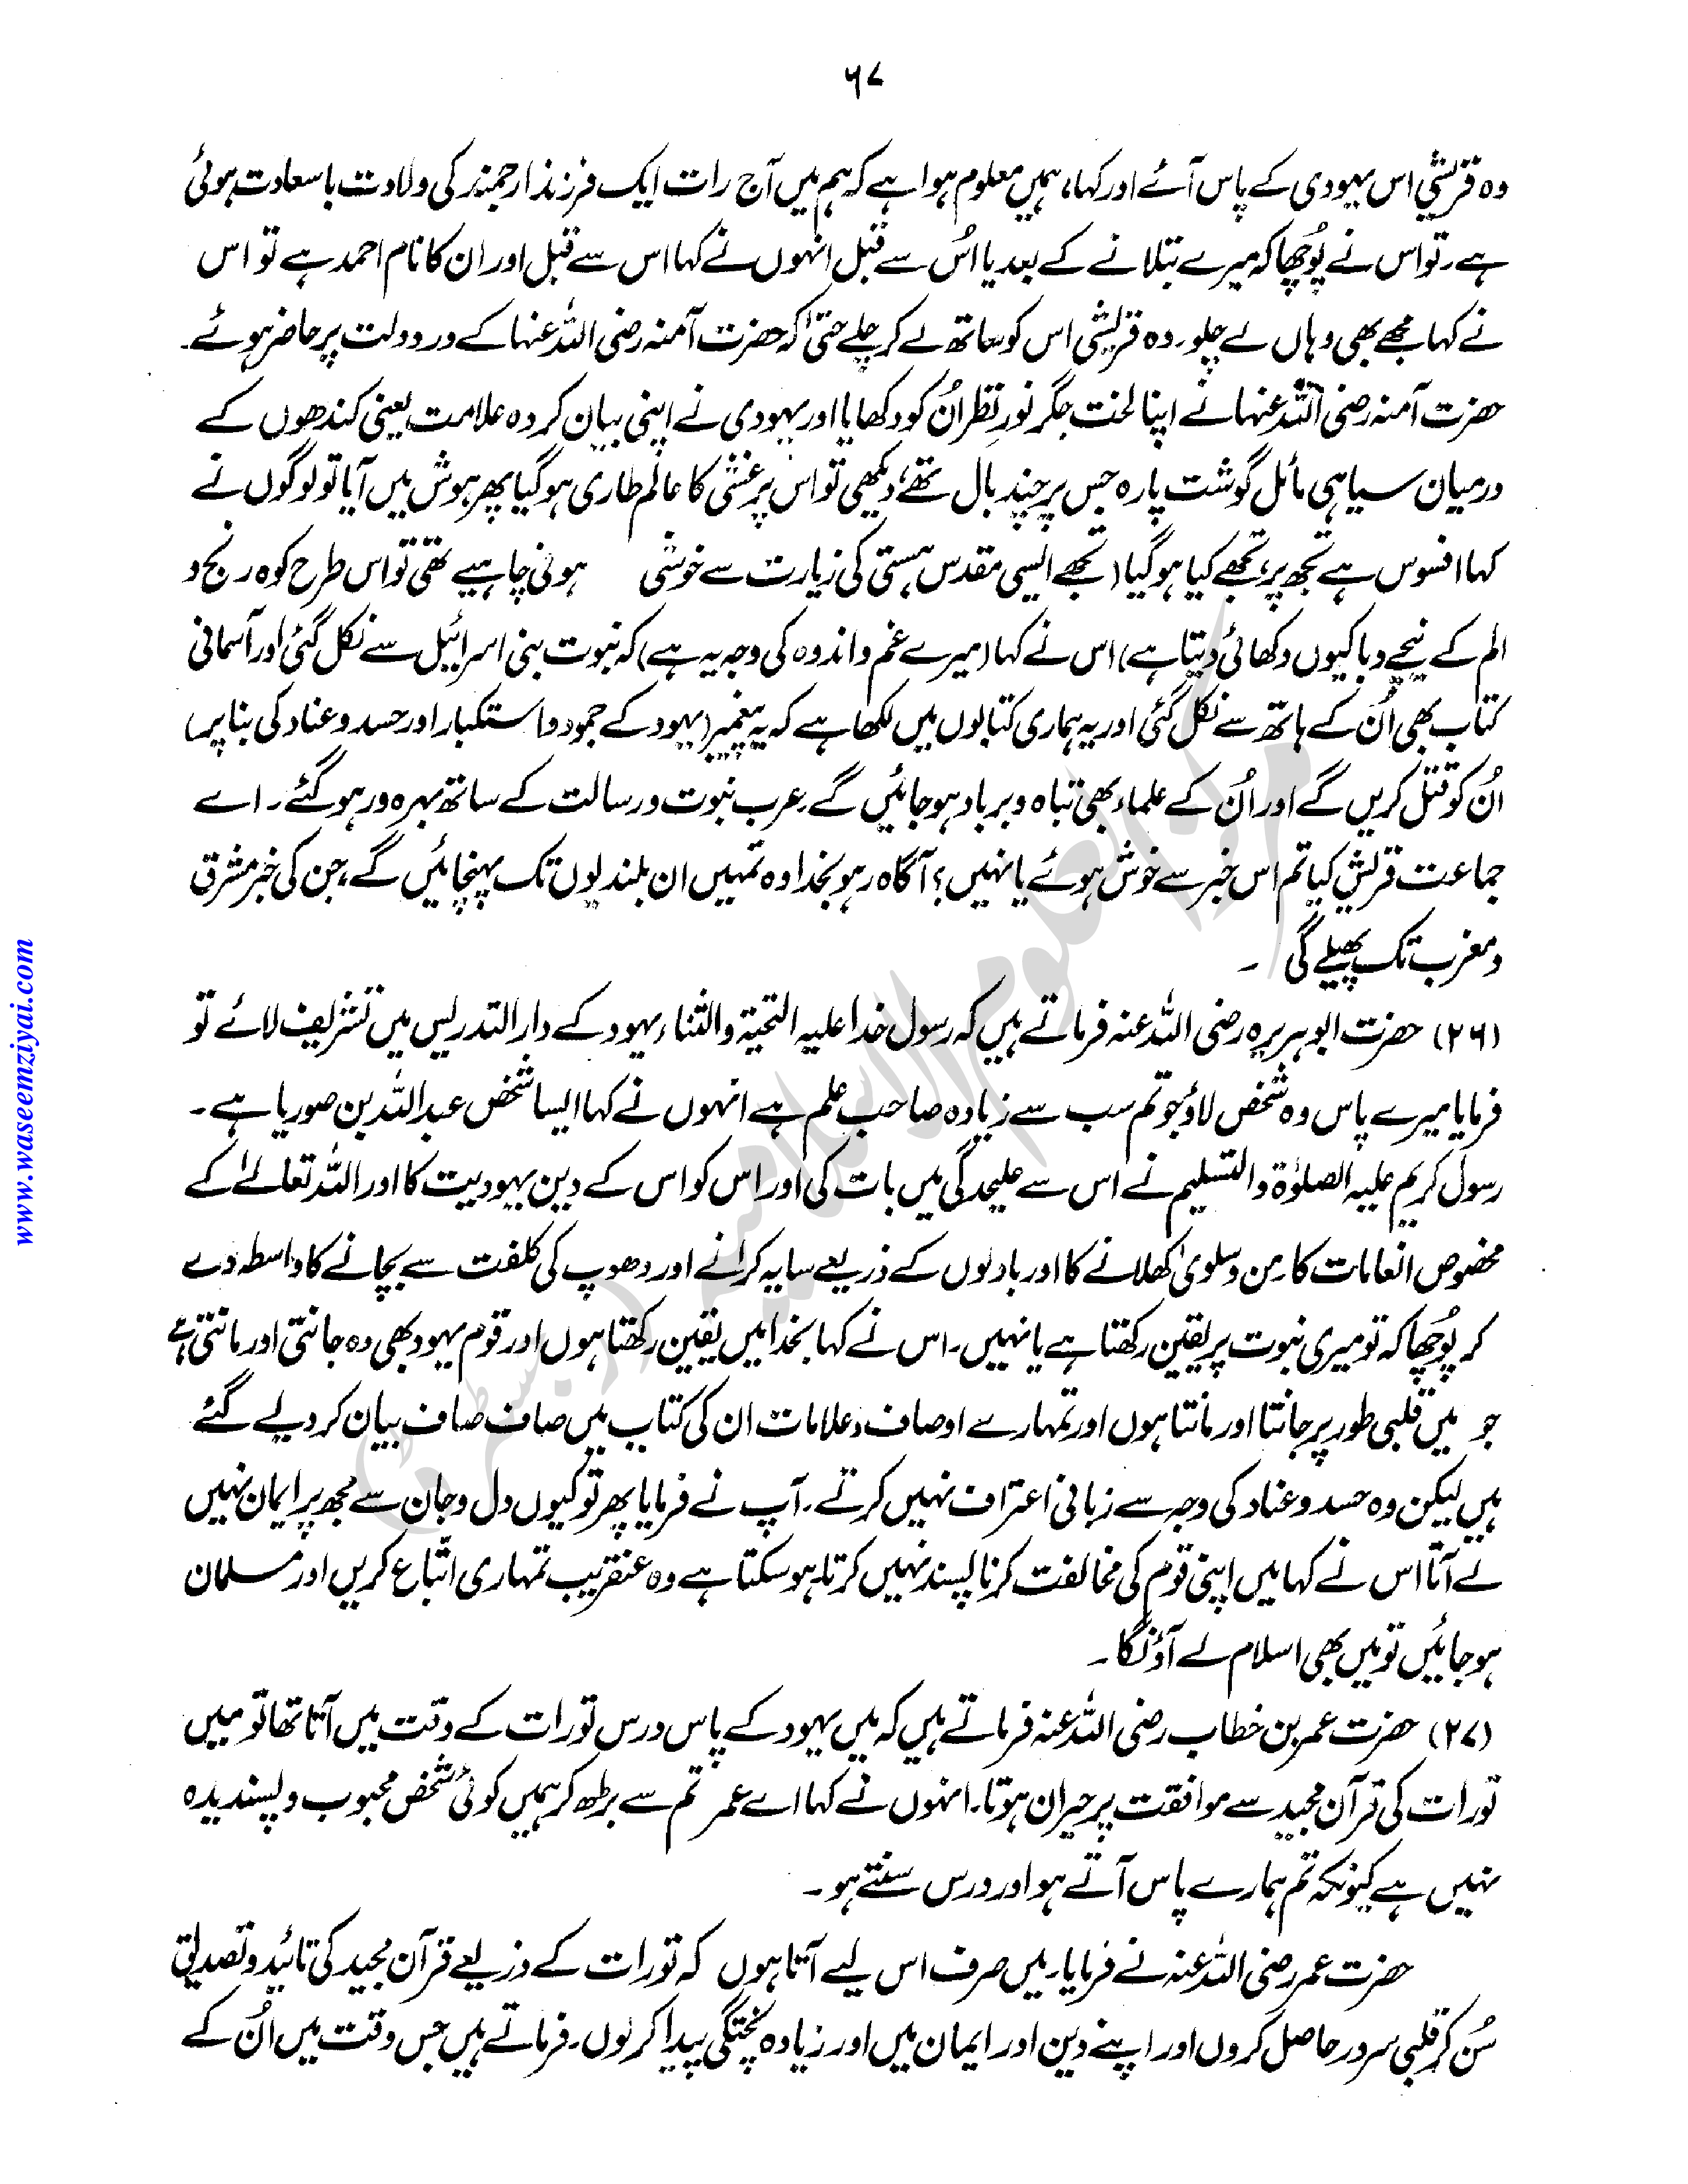 ۶۷
وہ قریشی اس یہودی کے پاس آئے اور کہا، ہمیں معلوم ہوا ہے کہ ہم میں آج رات ایک فرزند ارجمند کی ولادت باسعادت ہوئی
ہے۔ تو اس نے پُوچھا کہ میرے بتلانے کے بعد یا اُس سے قبل انہوں نے کہا اس سے قبل اور ان کا نام احمد ہے تو اس
نے کہا مجھے بھی وہاں لے چلو۔ وہ قریشی اس کو ساتھ لے کر چلے حتیٰ کہ حضرت آمنہ رضی اللہ عنہا کے در دولت پر حاضر ہوئے۔
حضرت آمنہ رضی اللہ عنہا نے اپنا لخت جگر نورِ نظر اُن کو دکھایا اور یہودی نے اپنی بیان کردہ علامت یعنی کندھوں کے
درمیان سیاہی مائل گوشت پارہ جس پر چند بال تھے، دیکھی تو اس پر غشی کا عالم طاری ہو گیا پھر ہوش میں آیا تو لوگوں نے
کہا افسوس ہے تجھ پر، تجھے کیا ہو گیا (تجھے ایسی مقدس ہستی کی زیارت سے خوشی ہونی چاہیے تھی تو اس طرح کوہ رنج و
الم کے نیچے دبا کیوں دکھائی دیتا ہے) اس نے کہا (میرے غم و اندوہ کی وجہ یہ ہے) کہ نبوت بنی اسرائیل سے نکل گئی اور آسمانی
کتاب بھی اُن کے ہاتھ سے نکل گئی اور یہ ہماری کتابوں میں لکھا ہے کہ یہ پیغمبر (یہود کے جمود و استکبار اور حسد و عناد کی بنا پر)
اُن کو قتل کریں گے اور اُن کے علماء بھی تباہ و برباد ہو جائیں گے۔ عرب نبوت و رسالت کے ساتھ بہرہ ور ہو گئے۔ اے
جماعت قریش کیا تم اس خبر سے خوش ہوئے یا نہیں؟ آگاہ رہو بخدا وہ تمہیں ان بلندیوں تک پہنچائیں گے، جن کی خبر مشرق
و مغرب تک پھیلے گی ۔
(۲۶) حضرت ابوہریرہ رضی اللہ عنہ فرماتے ہیں کہ رسول خدا علیہ التحیۃ والثناء یہود کے دار التدریس میں تشریف لائے تو
فرمایا میرے پاس وہ شخص لاؤ جو تم سب سے زیادہ صاحب علم ہے انہوں نے کہا ایسا شخص عبداللہ بن صوریا ہے۔
رسول کریم علیہ الصلوٰۃ والتسلیم نے اس سے علیحدگی میں بات کی اور اس کو اس کے دین یہودیت کا اور اللہ تعالےٰ کے
مخصوص انعامات کا۔ من و سلویٰ کھلانے کا اور بادلوں کے ذریعے سایہ کرانے اور دھوپ کی کلفت سے بچانے کا واسطہ دے
کر پُوچھا کہ تو میری نبوت پر یقین رکھتا ہے یا نہیں۔ اس نے کہا بخدا میں یقین رکھتا ہوں اور قوم یہود بھی وہ جانتی اور مانتی ہے
جو میں قلبی طور پر جانتا اور مانتا ہوں اور تمہارے اوصاف و علامات ان کی کتاب میں صاف صاف بیان کر دیے گئے
ہیں لیکن وہ حسد و عناد کی وجہ سے زبانی اعتراف نہیں کرتے۔ آپ نے فرمایا پھر تو کیوں دل و جان سے مجھ پر ایمان نہیں
لے آتا اس نے کہا میں اپنی قوم کی مخالفت کرنا پسند نہیں کرتا۔ ہو سکتا ہے وہ عنقریب تمہاری اتّباع کریں اور مسلمان
ہو جائیں تو میں بھی اسلام لے آؤنگا۔
(۲۷) حضرت عمر بن خطاب رضی اللہ عنہ فرماتے ہیں کہ میں یہود کے پاس درس تورات کے وقت میں آتا تھا تو میں
تورات کی قرآن مجید سے موافقت پر حیران ہوتا۔ انہوں نے کہا اے عمر تم سے بڑھ کر ہمیں کوئی شخص محبوب و پسندیدہ
نہیں ہے کیونکہ تم ہمارے پاس آتے ہو اور درس سنتے ہو۔
حضرت عمر رضی اللہ عنہ نے فرمایا۔ میں صرف اس لیے آتا ہوں کہ تورات کے ذریعے قرآن مجید کی تائید و تصدیق
سُن کر قلبی سرور حاصل کروں اور اپنے دین اور ایمان میں اور زیادہ پختگی پیدا کر لوں۔ فرماتے ہیں جس وقت میں اُن کے
www.waseemziyai.com